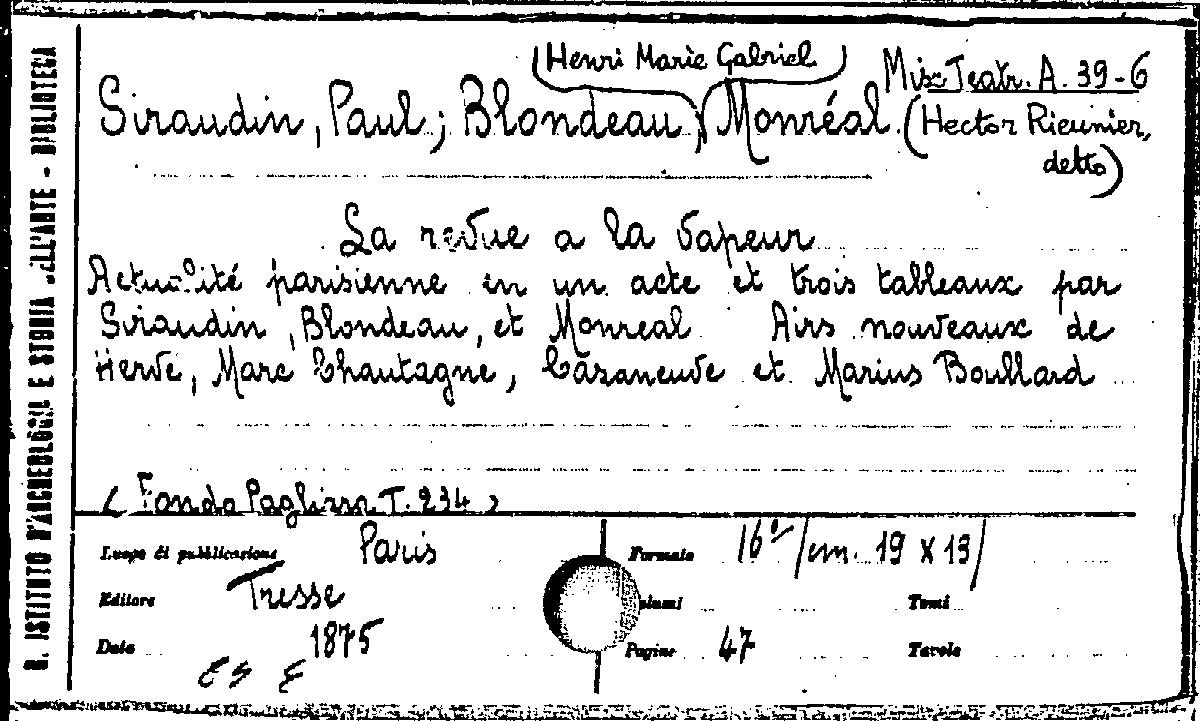 R. ISTITUTO D'ARCHEOLOGIA E STORIA DELL'ARTE - BIBLIOTECA
(Henri Marie Gabriel) Mix Teatr. A. 39-6
Siraudin, Paul; Blondeau, Monréal (Hector Rieunier,
detto)
La revue a la vapeur
Actualité parisienne en un acte et trois tableaux par
Siraudin, Blondeau, et Monreal Airs nouveaux de
Hervé, Marc Chautagne, Cazaneuve et Marius Boullard
(Fondo Pagliara T. 234)
Luogo di pubblicazione Paris Formato 16° /cm. 19 X 13/
Editore Tresse Volumi Tomi
Data 1875 Pagine 47 Tavole